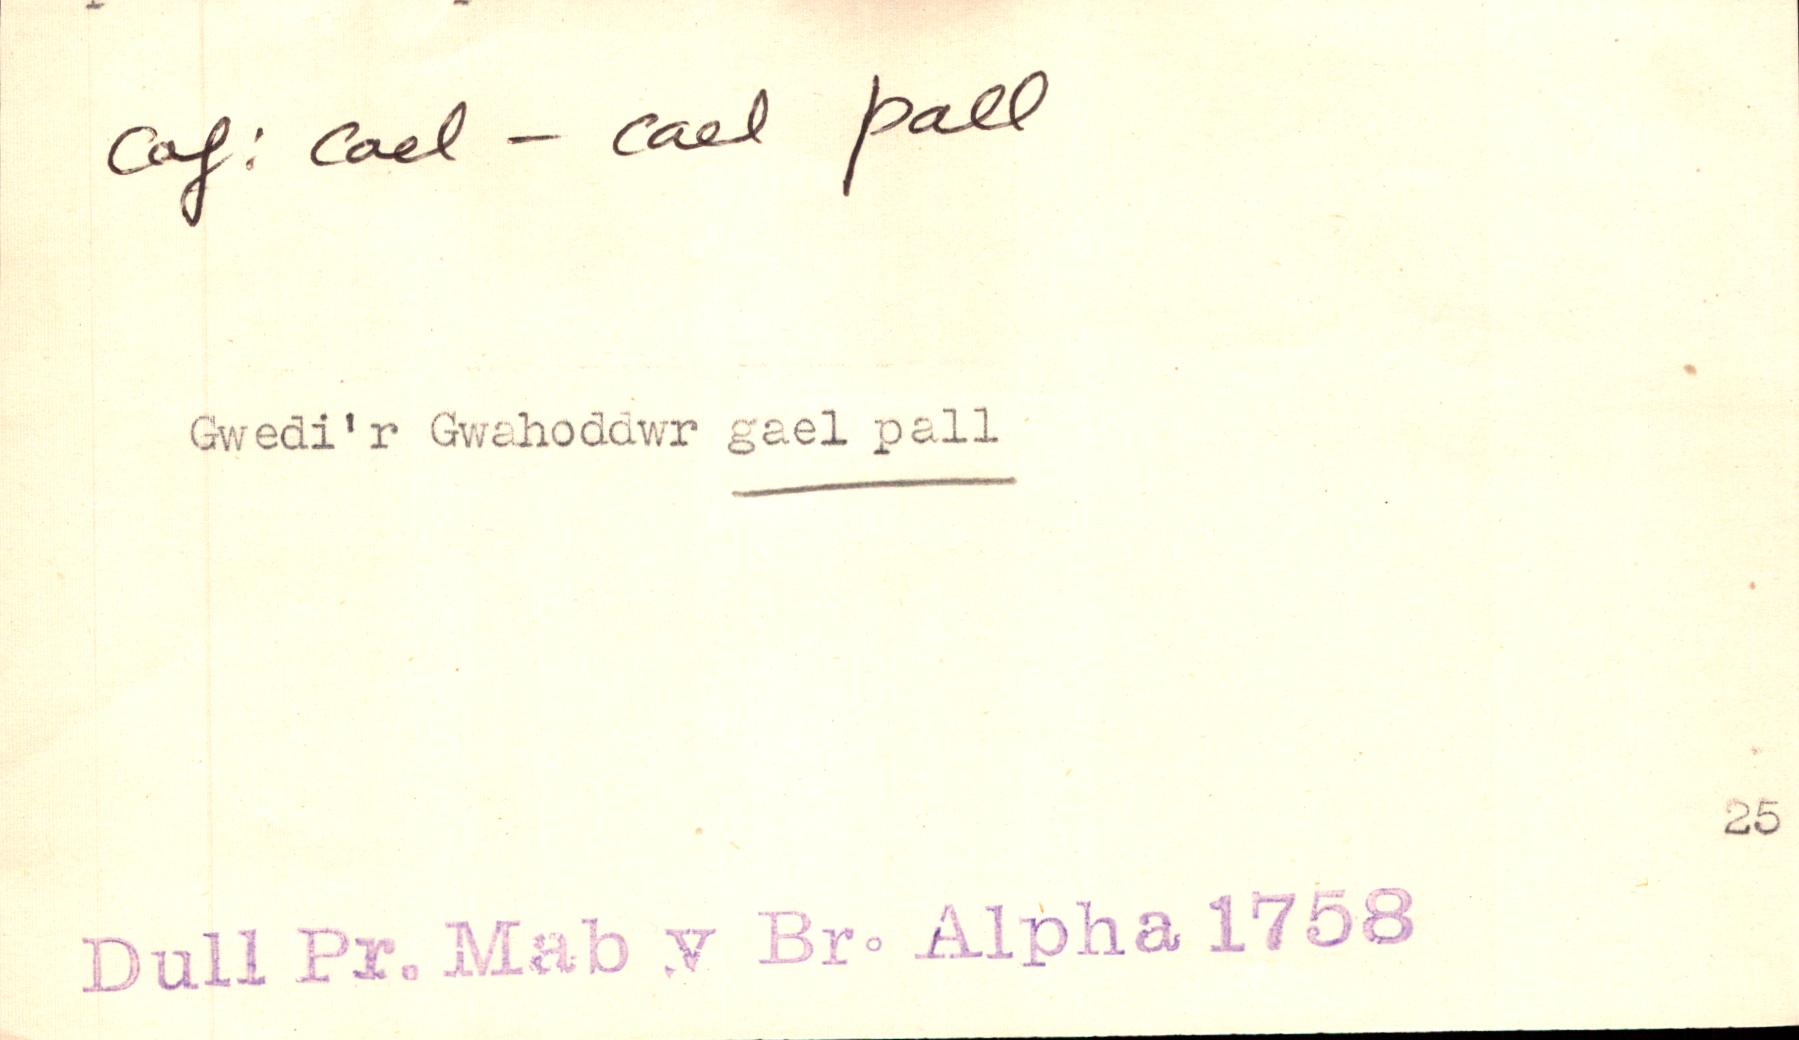 caf: cael – cael pall
Gwedi'r Gwahoddwr gael pall
25
Dull Pr. Mab y Br. Alpha 1758